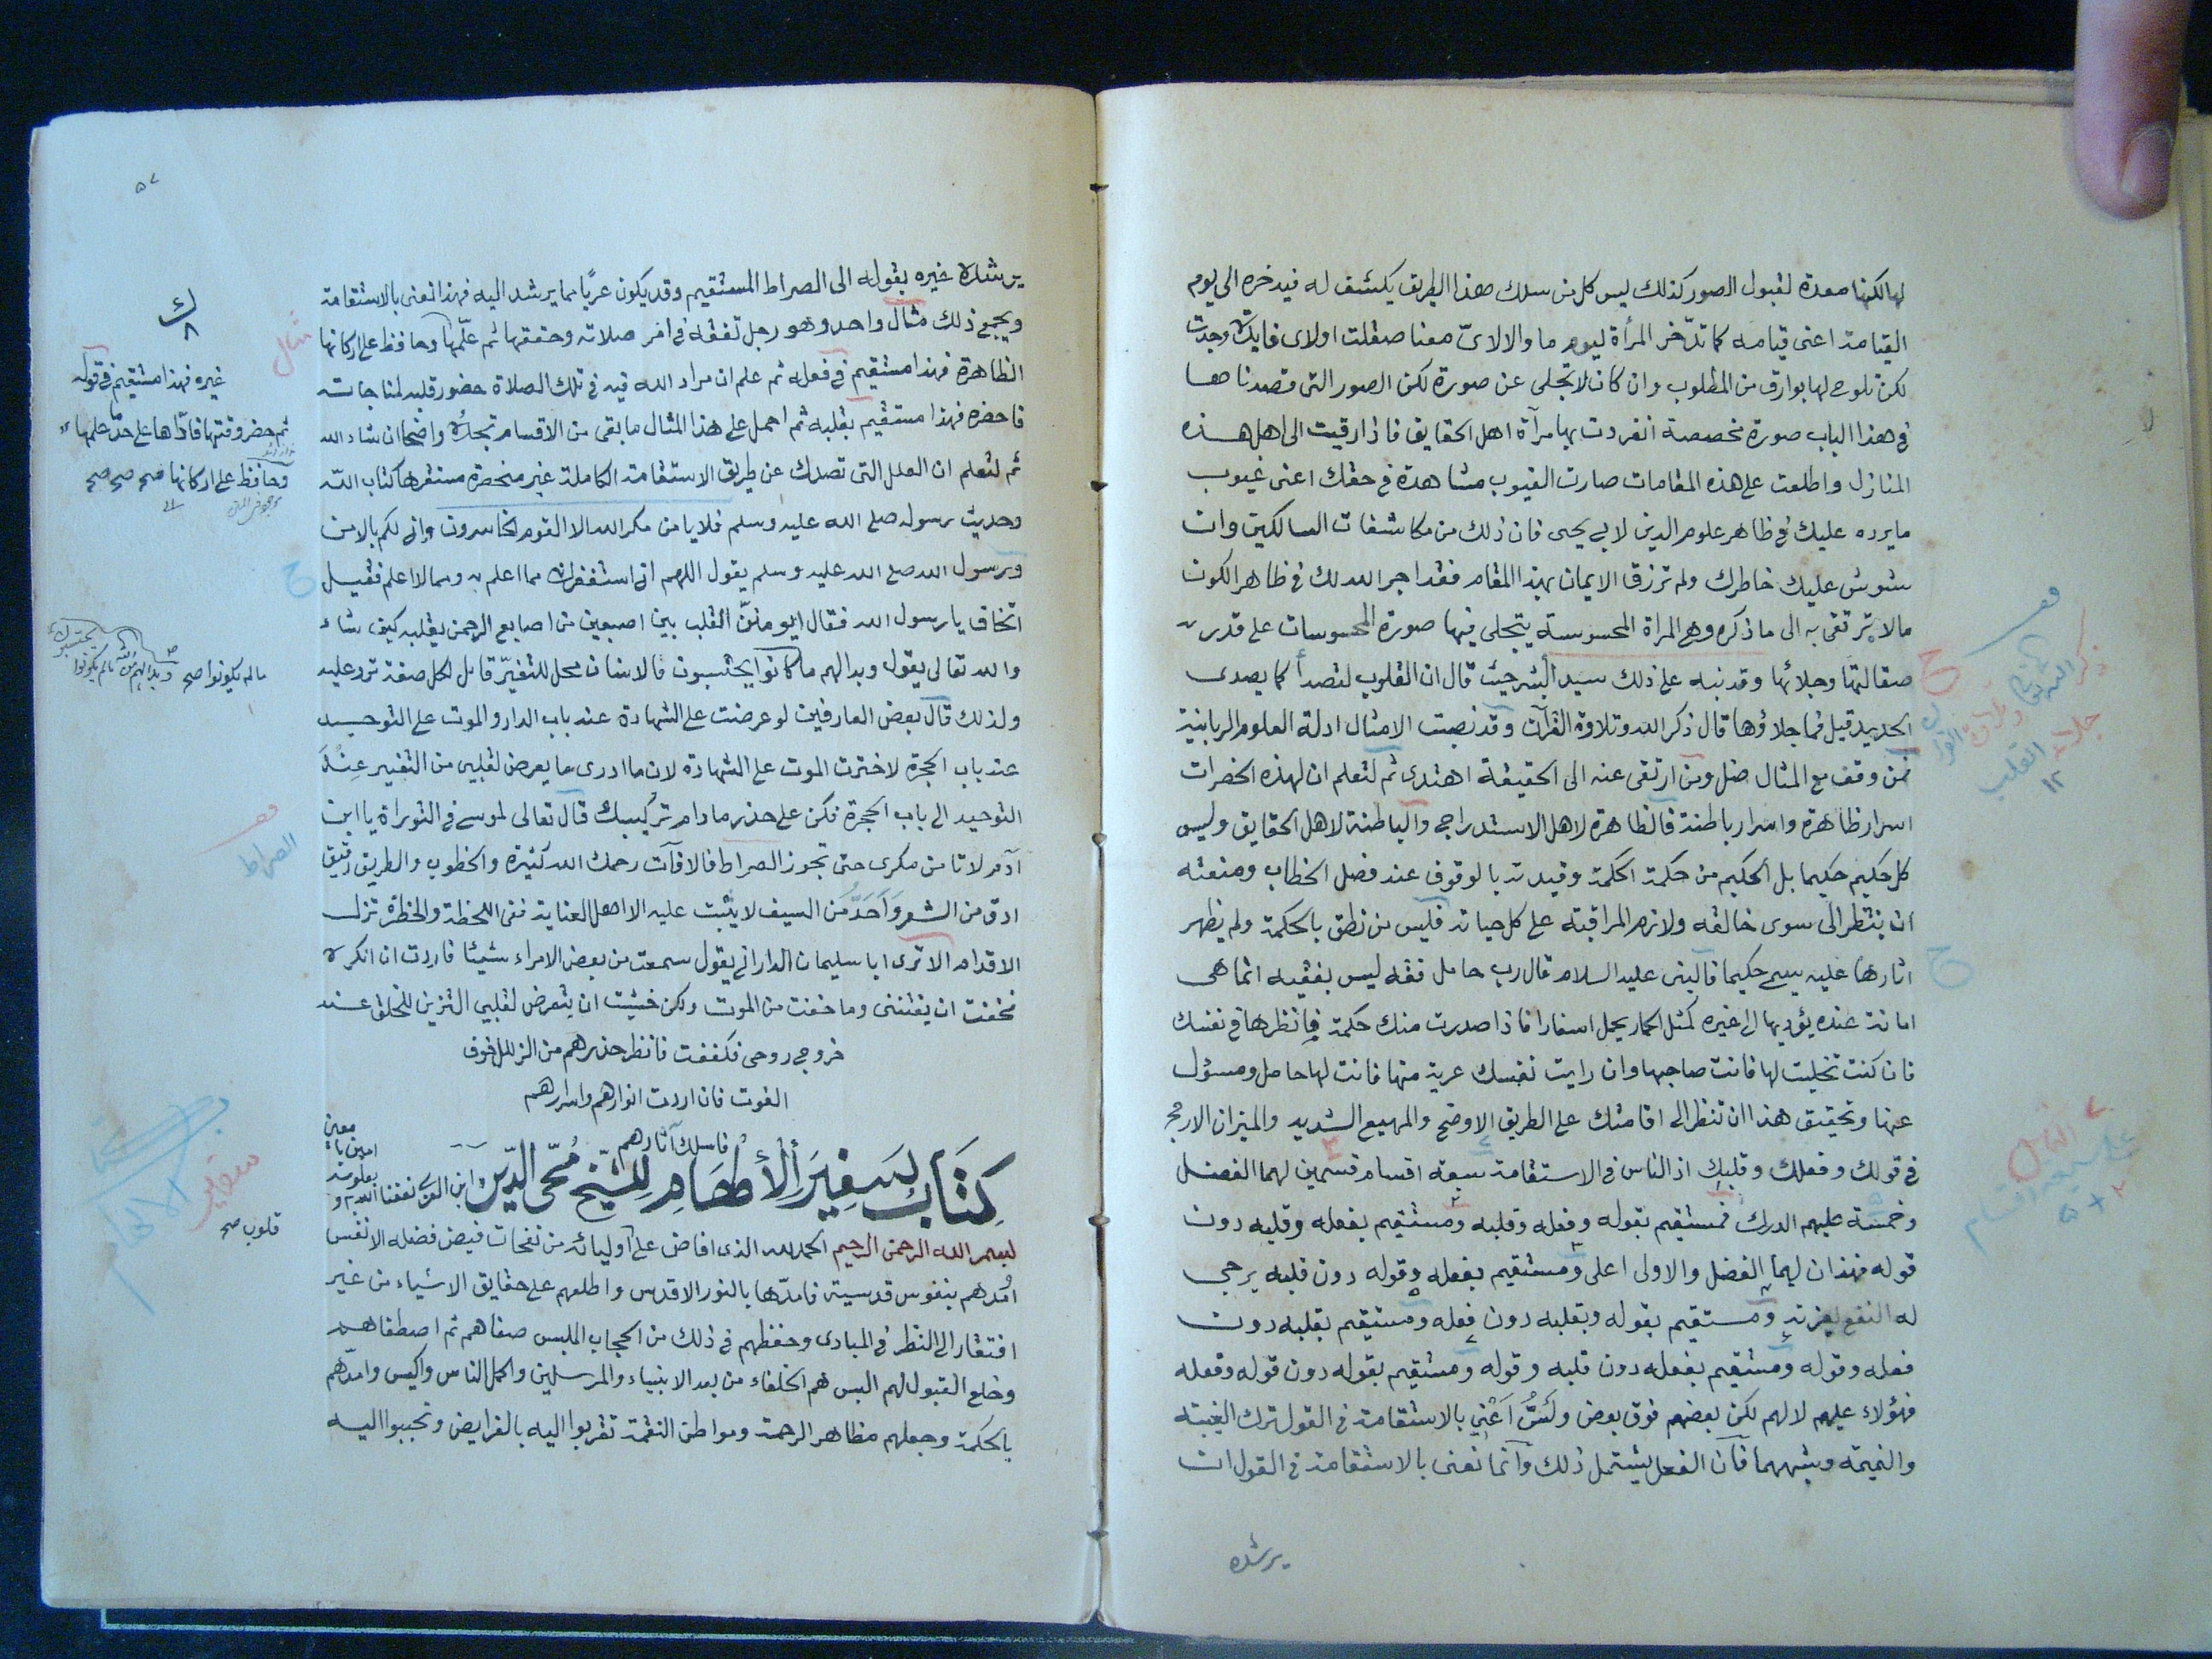 لها لكنها معدة لقبول الصور كذلك ليس كل من سلك هذا الطريق يكشف له فيدخره الى يوم
القيامة اعنى قيامه كما تدّخر المرأة ليوم ما والا لاىّ معنا صقلت اولاى فايدة وجدت
لكن تلوح لها بوارق من المطلوب وان كان لا تجلى عن صورة لكن الصور التى قصدناها
فى هذا الباب صورة مخصصة انفردت بها مرآة اهل الحقايق فاذا رقيت الى اهل هذه
المنازل واطلعت على هذه المقامات صارت الغيوب مشاهدة فى حقك اعنى غيوب
ما يرده عليك فى ظاهر علوم الدين لابى يحيى فان ذلك من مكاشفات السالكين وان
شوش عليك خاطرك ولم ترزق الايمان بهذا المقام فقد اجر الله لك فى ظاهر الكون
مالا يترتقى به الى ما ذكره وهى المراة المحسوسة يتجلى فيها صورة المحسوسات على قدر
صقالتها وجلائها وقد نبه على ذلك سيد البشر حيث قال ان القلوب لتصدأ كما يصدى
الحديد قيل فما جلاؤها قال ذكر الله وتلاوة القرآن وقد نصبت الامثال ادلة العلوم الربانية
فمن وقف مع المثال ضل ومن ارتقى عنه الى الحقيقة اهتدى ثم لتعلم ان لهذه الحضرات
اسرار ظاهرة واسرار باطنة فالظاهرة لاهل الاستدراج والباطنة لاهل الحقايق وليس
كل حكيم حكيما بل الحكيم من حكمة الحكمة وقيدته بالوقوف عند فصل الخطاب ومنعته
ان ينظر الى سوى خالقه ولازم المراقبة على كل حياته فليس من نطق بالحكمة ولم يظهر
اثارها عليه يسمى حكيما فالنبى عليه السلام قال رب حامل فقه ليس بفقيه انما هى
امانة عنده يؤديها الى غيره كمثل الحمار يحمل اسفارا فاذا صدرت منك حكمة فانظرها فى نفسك
فان كنت تحليت لها فانت صاحبها وان رايت نفسك عرية منها فانت لها حامل ومسؤل
عنها وتحقيق هذا ان تنظر الى اقامتك على الطريق الاوضح والمهيع السديد والميزان الارجح
فى قولك وفعلك وقلبك اذ الناس فى الاستقامة سبعة اقسام قسمين لهما الفضل
وخمسة عليهم الدرك فمستقيم بقوله وفعله وقلبه ومستقيم بفعله وقلبه دون
قوله فهذان لهما الفضل والاولى اعلى ومستقيم بفعله وقوله دون قلبه يرجى
له النفع لغيره ومستقيم بقوله وبقلبه دون فعله ومستقيم بقلبه دون
فعله وقوله ومستقيم بفعله دون قلبه وقوله ومستقيم بقوله دون قوله وفعله
فهؤلاء عليهم لا لهم لكن بعضهم فوق بعض ولَسْتُ اَعْنِى بالاستقامة فى القول ترك الغيبة
والنميمة وشبههما فان الفعل يشتمل ذلك وانما نعنى بالاستقامة فى القول ان
يرشده
ذكر الله تعالى وتلاوة القرآن
جلاء القلب
الناس على سبعة اقسام
٢ + ٥
٥٧
يرشده غيره بقوله الى الصراط المستقيم وقد يكون عريًا مما يرشد اليه فهذا نعنى بالاستقامة
ويجمع ذلك مثال واحد وهو رجل تفقه فى امر صلاته وحققها ثم علّمها وحافظ على اركانها
الظاهرة فهذا مستقيم فى فعله ثم علم ان مراد الله فيه فى تلك الصلاة حضور قلبه لمناجاته
فاحضره فهذا مستقيم بقلبه ثم احمل على هذا المثال ما بقى من الاقسام تجده واضحا ان شاء الله
ثم لتعلم ان العلل التى تصدك عن طريق الاستقامة الكاملة غير منحصرة مستقرها كتاب الله
وحديث رسوله صلى الله عليه وسلم فلا يامن مكر الله الا القوم الخاسرون وانى لكم بالامن
ورسول الله صلى الله عليه وسلم يقول اللهم انى استغفرك مما اعلم ومما لا اعلم فقيل
اتخاف يا رسول الله فقال اليومنّن القلب بين اصبعين من اصابع الرحمن يقلبه كيف شاء
والله تعالى يقول وبدا لهم ما كانوا يحتسبون فالانسان محل للتغيّر قابل لكل صفة ترد عليه
ولذلك قال بعض العارفين لو عرضت على الشهادة عند باب الدار والموت على التوحيد
عند باب الحجرة لاخترت الموت على الشهادة لان ما ادرى ما يعرض لقلبى من التغيير عِنْدَ
التوحيد الى باب الحجرة فكن على حذر ما دام تركيبك قال تعالى لموسى فى التوراة يا ابن
آدم لا تامن مكرى حتى تجوز الصراط فالافات رحمك الله كثيرة والخطوب والطريق دقيق
ادق من الشعر وَاَحَدُّ من السيف لا يثبت عليه الا اهل العناية ففى اللحظة والخطرة تزل
الاقدام الا ترى ابا سليمان الدارانى يقول سمعت من بعض الامراء شيئا فاردت ان انكره
فخفت ان يفتننى وما خفت من الموت ولكن خشيت ان يتعرض لقلبى التزين للخلق عند
خروج روحى فكففت فانظر حذرهم من الزلل خوف
الفوت فان اردت انوارهم واسرارهم
فاسلك آثارهم
كِتَاب لسفير الأطهام للشيخ مُحْى الدّين ابن العربى نفعنا الله به و
بعلومه
امين يا
معين
بسم الله الرحمن الرحيم الحمد لله الذى افاض على اوليائه من نفحات فيض فضله الانفس
امدهم بنفوس قدسية فامدّها بالنور الاقدس واطلعهم على حقايق الاشياء من غير
افتقار الى النظر فى المبادى وحفظهم فى ذلك من الحجاب الملبس صفاهم ثم اصطفاهم
وخلع القبول لهم البس هم الخلفاء من بعد الانبياء والمرسلين واكمل الناس واكيس وامدّهم
بالحكمة وجعلهم مظاهر الرحمة ومواطن النقمة تقربوا اليه بالفرايض وتحببوا اليه
مثال
غيره فهذا مستقيم فى قوله
ثم حضر وقتها فادّاها على حدّ علمها
وحافظ على اركانها صح صح صح
ما لم يكونوا صح
الصراط
قلوب صح